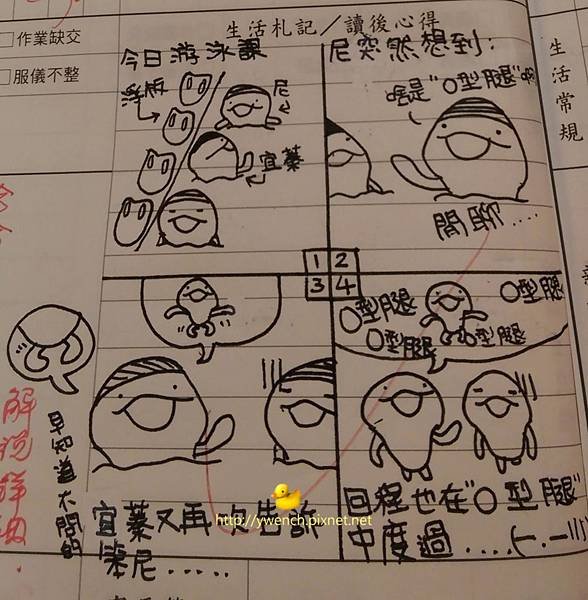 生活札記／讀後心得
□作業缺交
□服儀不整
生活常規
今日游泳課
浮板
尼
宜蓁
尼突然想到：
啥是"O型腿"啊
閒聊....
1 2
3 4
早知道不問的
宜蓁又再次告訴
笨尼.....
O型腿
O型腿
O型腿
O型腿
回程也在"O型腿"
中度過....(-.-|||)
http://ywench.pixnet.net